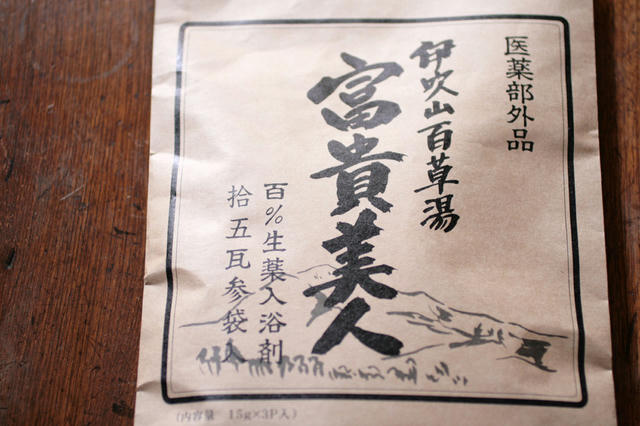 医薬部外品
伊吹山百草湯
富貴美人
百%生薬入浴剤
拾五瓦参袋入
(内容量 15g×3P入)